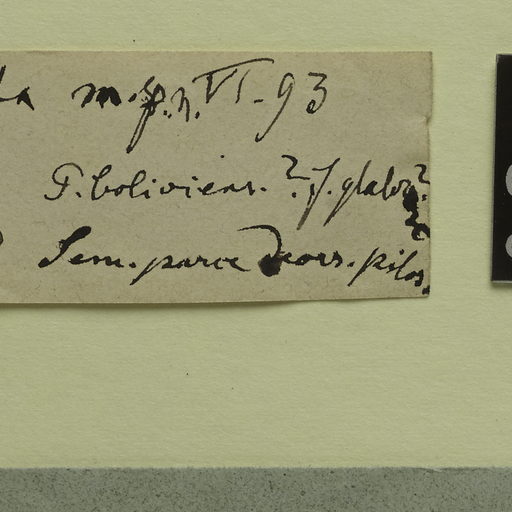 m.p.n. VI.-93
F. boliviens. ? F. glabr.?
Sem. parce deors. pilos.